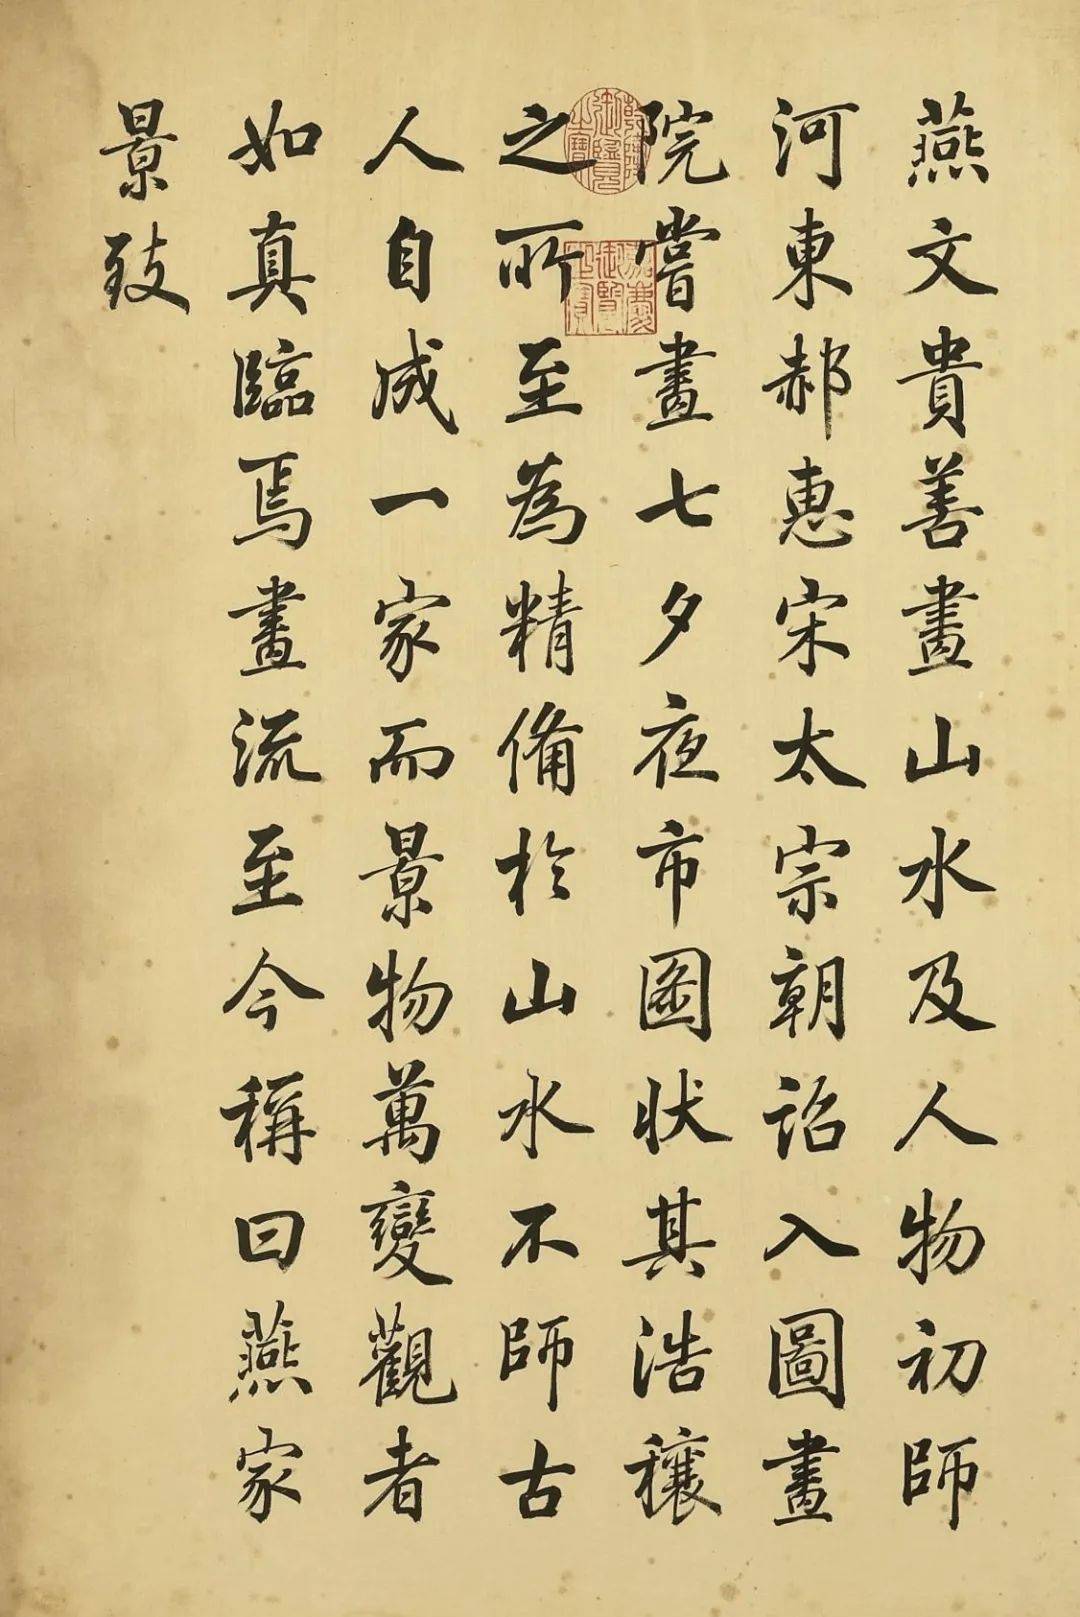 燕文貴善畫山水及人物初師
河東郝惠宋太宗朝詔入圖畫
院嘗畫七夕夜市圖状其浩穰
之所至為精備於山水不師古
人自成一家而景物萬變觀者
如真臨焉畫流至今稱曰燕家
景致
乾隆御覽之寶
嘉慶御覽之寶